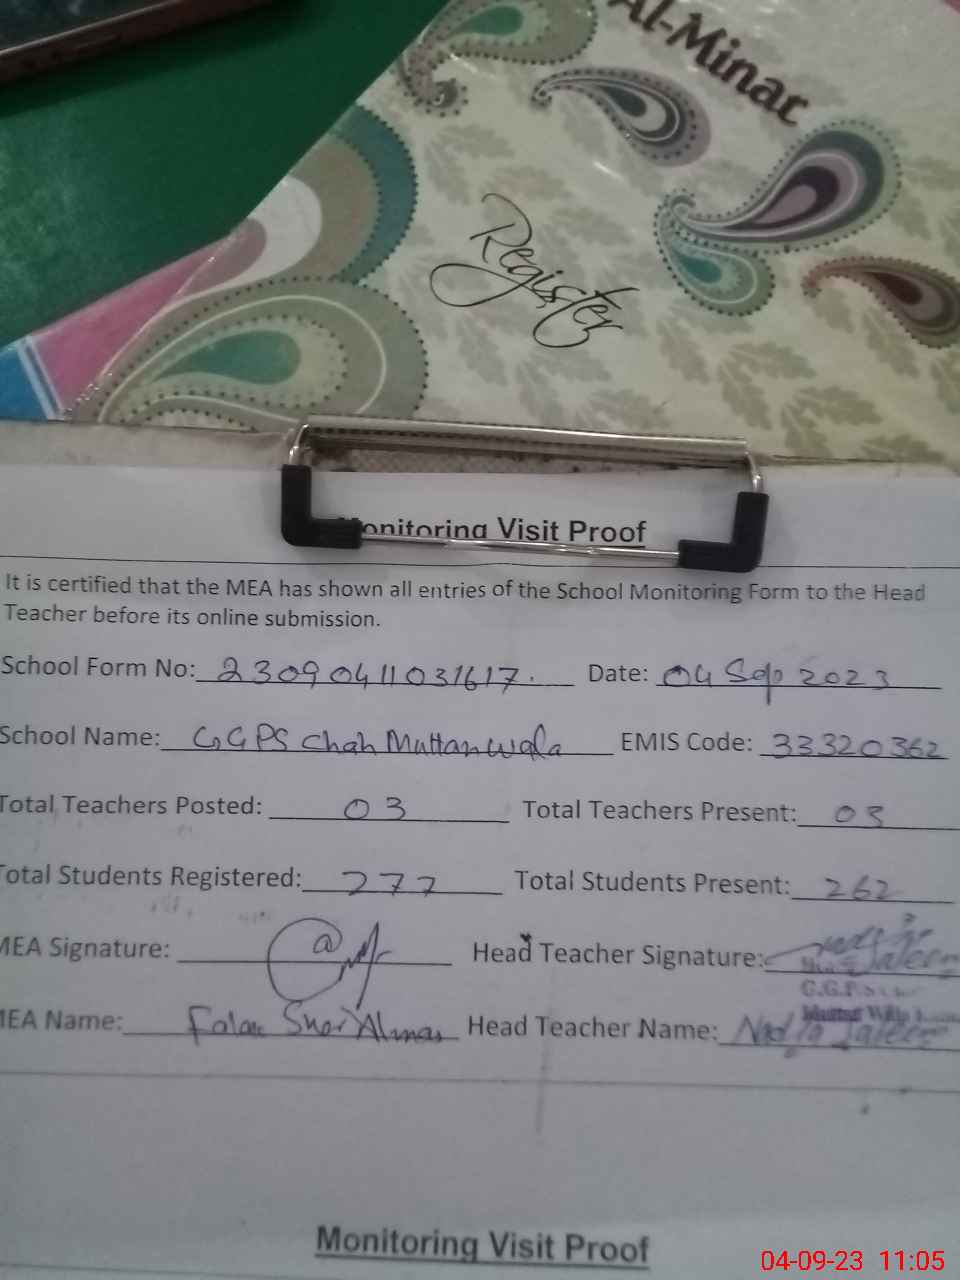 Al-Minar
Register
Monitoring Visit Proof
It is certified that the MEA has shown all entries of the School Monitoring Form to the Head
Teacher before its online submission.
School Form No: 23090411031617. Date: 04 Sep 2023
School Name: GGPS Chah Muttanwala EMIS Code: 33320362
Total Teachers Posted: 03 Total Teachers Present: 03
Total Students Registered: 277 Total Students Present: 262
MEA Signature: Head Teacher Signature:
G.G.P.S
MEA Name: Falak Sher Almas Head Teacher Name: Nadia Saleem
Monitoring Visit Proof
04-09-23 11:05